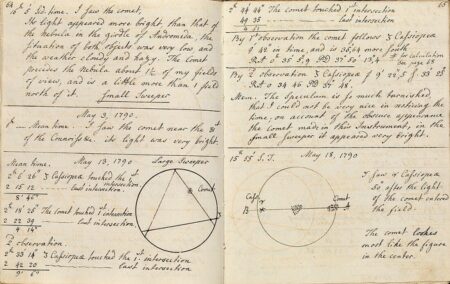 64
15h 5' Sid. time. I saw the comet,
Its light appeared more bright, than that of
the Nebula in the girdle of Andromeda. the
situation of both objects was very low and
the weather cloudy and hazy. The Comet
precedes the Nebula about 1½ of my fields
of view, and is a little more than 1 field
north of it. Small Sweeper
May 3, 1790.
Mean time. I saw the comet near the
of the its light was very bright.
Mean time. May 13, 1790. Large Sweeper
2h 6' 26" ξ Cassiopea touched the 1st intersection.
2 15 12 last intersection.
8' 46"
2h 18' 25" The comet touched 1st intersection
2 22 39 last intersection
4' 14"
2d observation.
2h 33' 14" ξ Cassiopea touched the 1st intersection
2 42 20 last intersection
9' 6"
Comet
65
2h 44' 46" The comet touched 1st intersection
49 35 last intersection
By 1st observation the comet follows ξ Cassiopea
9' 42" in time, and is 36,64 more south
RA 0h 35' 5",9 PD 37° 50' 13",4
see page 68
By 2d observation ξ Cassiopea f 9' 22",5 33' 28"
RA 0 34 46 PD 37 48
Mem: The Speculum is so much tarnished,
that I could not be very nice in noticing the
time, on account of the obscure appearance
the Comet made in this Instrument, in the
Small Sweeper it appeared very bright.
15h 55' S.T. May 18, 1790
I saw Cassiopea
50" after the light
of the comet entered
the field.
Cassi
B
Comet
A
The comet looks
most like the figure
in the center.